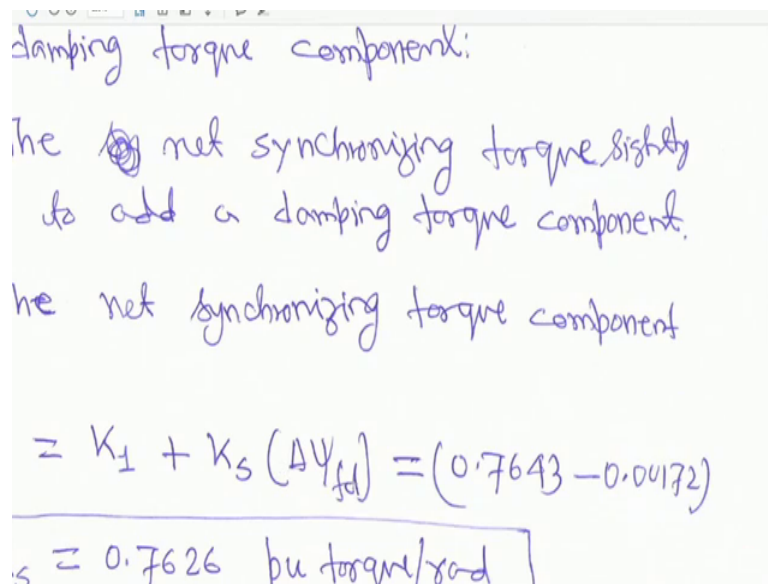 damping torque component:
he net synchronizing torque sightly
to add a damping torque component.
he net synchronizing torque component
= K1 + KS (ΔΨfd) = (0.7643 - 0.00172)
s = 0.7626 pu torque/rad